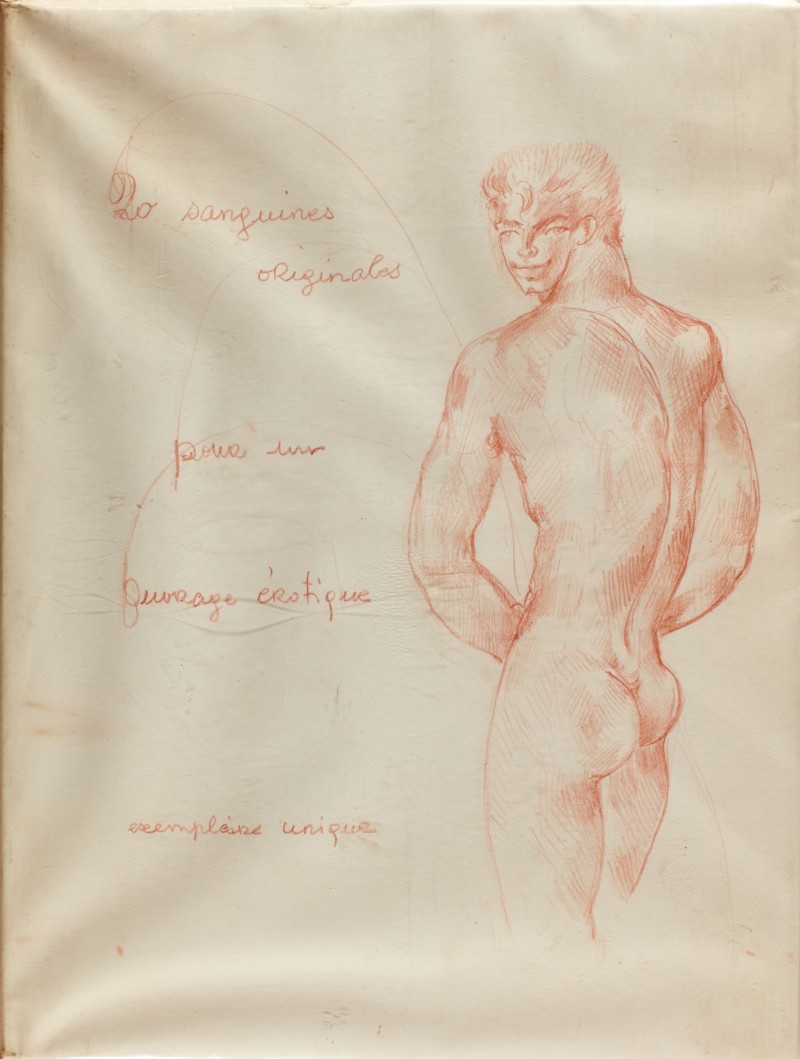 20 sanguines
originales
pour un
Ouvrage érotique
exemplaire unique